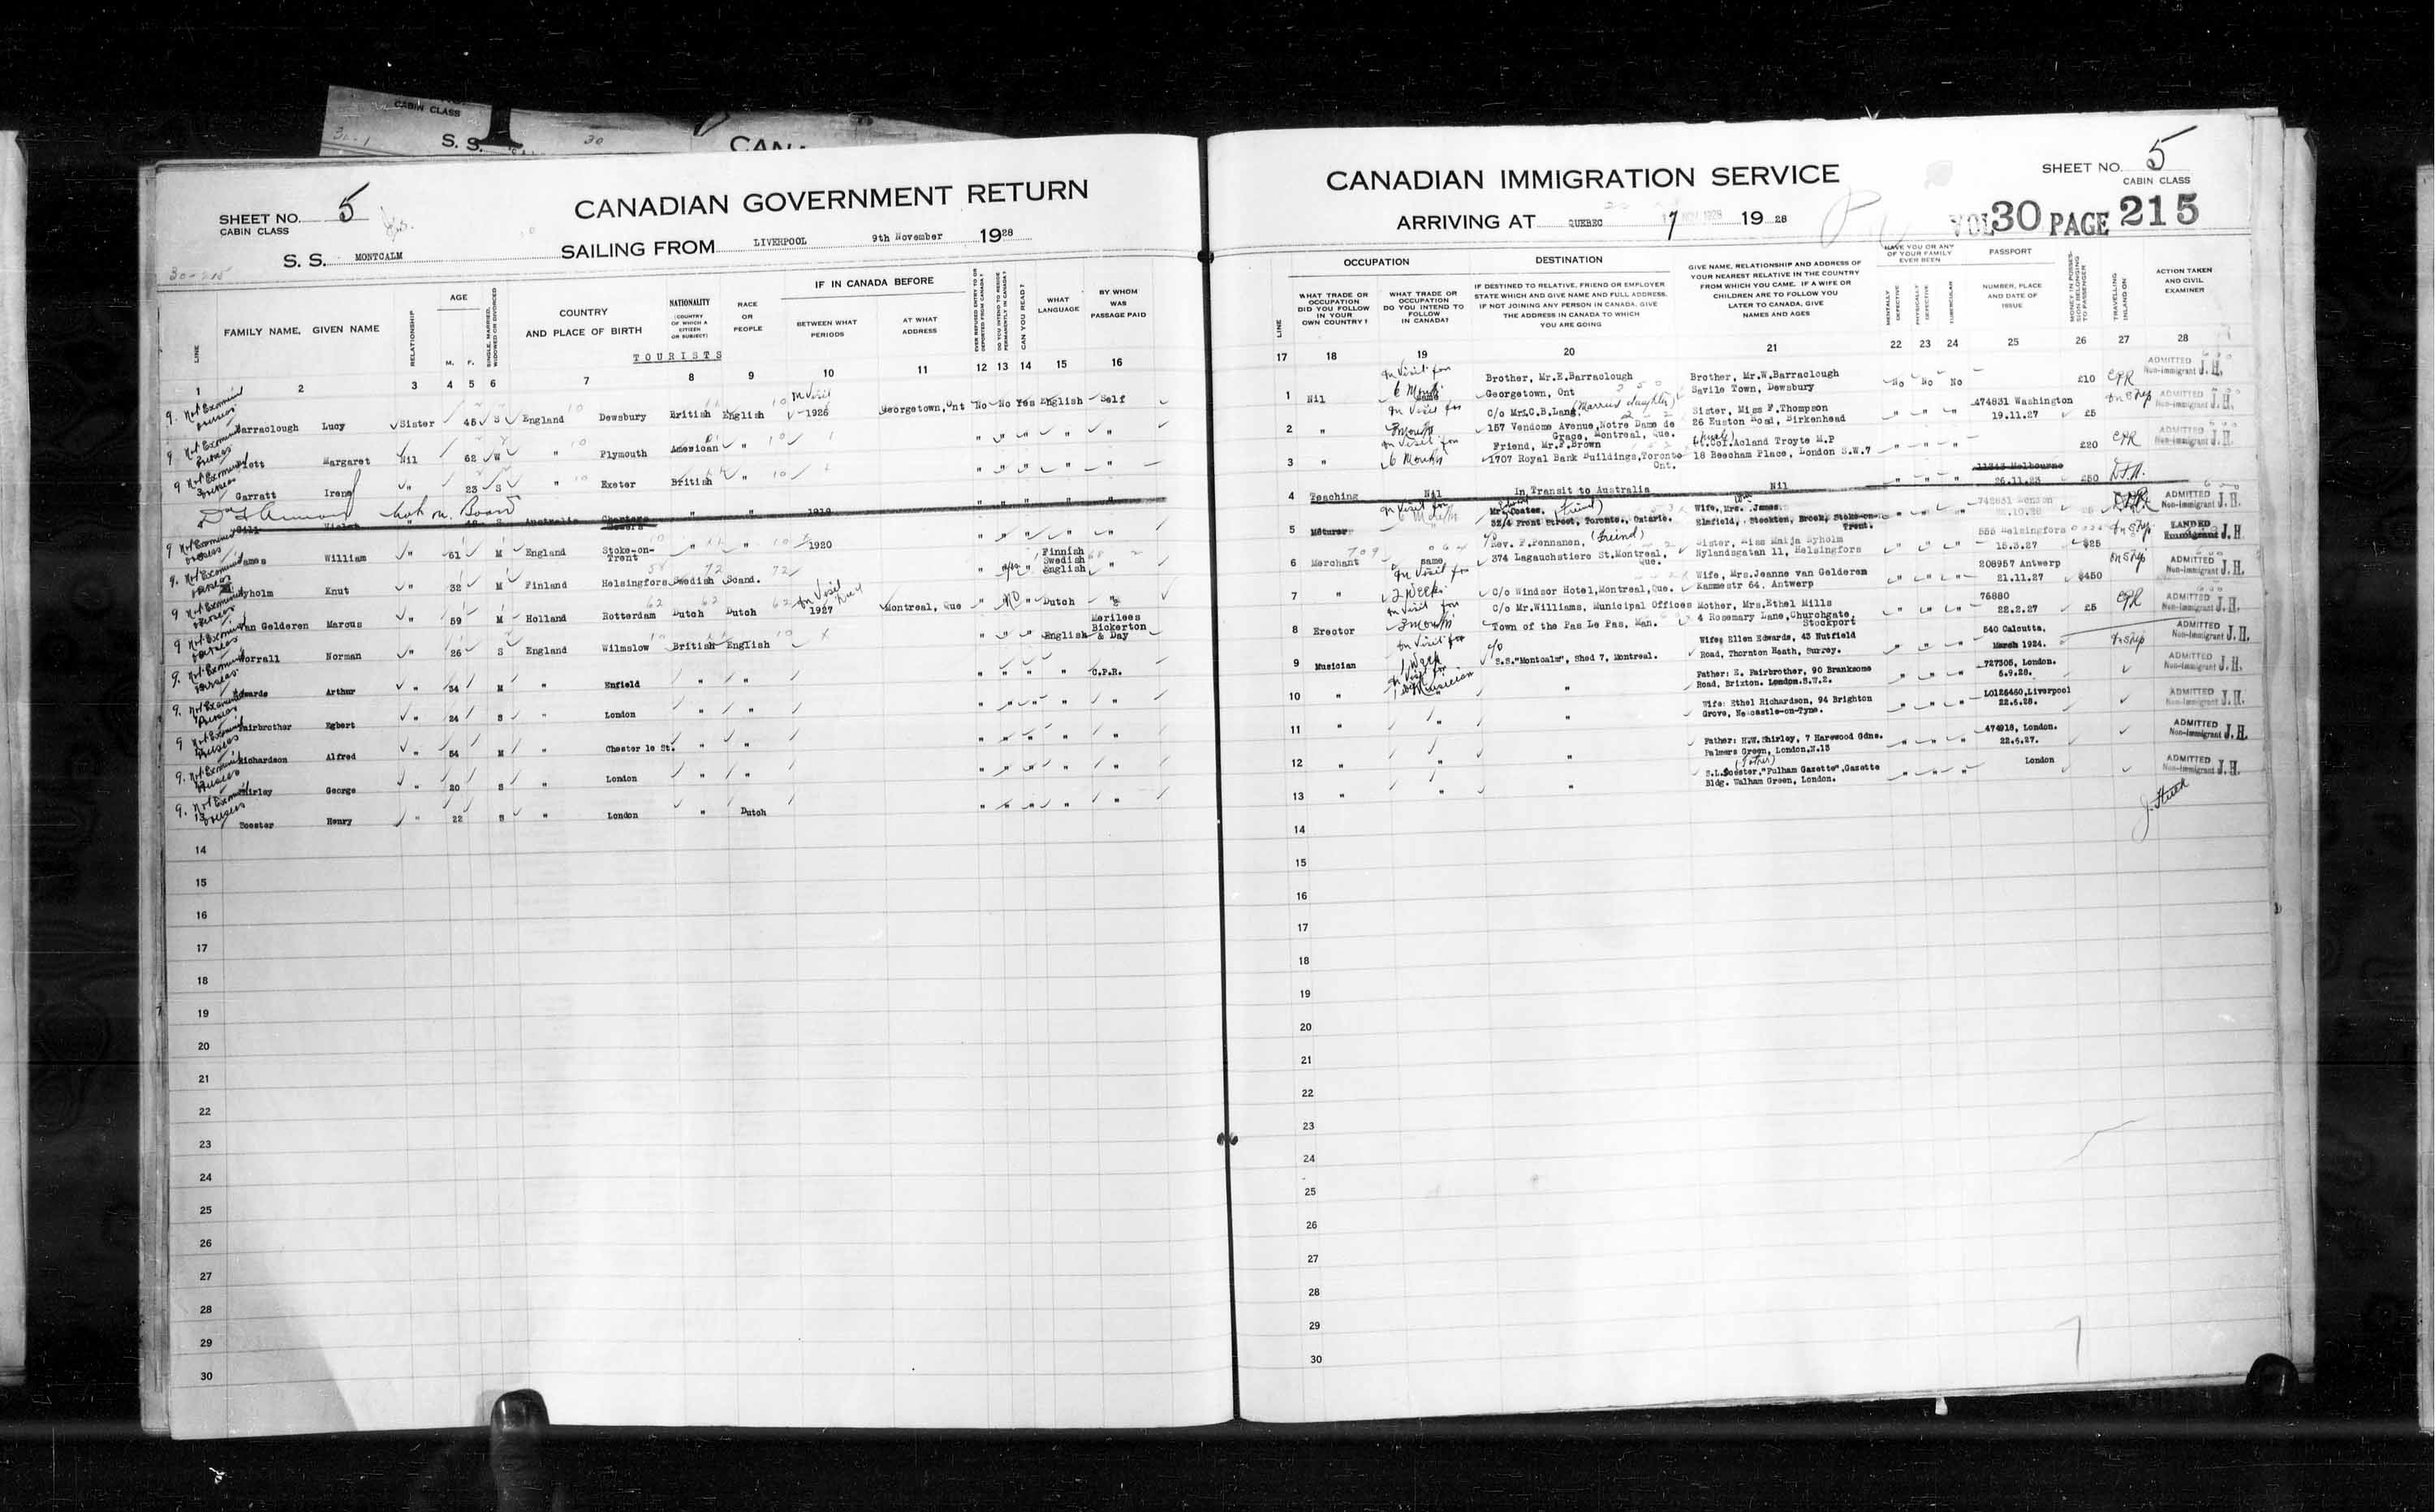 CABIN CLASS
S. S.
30
SHEET NO. 5
CABIN CLASS
CANADIAN GOVERNMENT RETURN
S. S. MONTCALM SAILING FROM LIVERPOOL 9th November 1928
30-215
LINE
FAMILY NAME, GIVEN NAME
RELATIONSHIP
AGE
M. F.
SINGLE, MARRIED, WIDOWED OR DIVORCED
COUNTRY
AND PLACE OF BIRTH
TOURISTS
NATIONALITY
(COUNTRY OF WHICH A CITIZEN OR SUBJECT)
RACE OR PEOPLE
IF IN CANADA BEFORE
BETWEEN WHAT PERIODS
AT WHAT ADDRESS
EVER REFUSED ENTRY TO OR DEPORTED FROM CANADA?
DO YOU INTEND TO RESIDE PERMANENTLY IN CANADA?
CAN YOU READ?
WHAT LANGUAGE
BY WHOM WAS PASSAGE PAID
1 2 3 4 5 6 7 8 9 10 11 12 13 14 15 16
Barraclough Lucy Sister 45 S England Dewsbury British English On Visit 1926 Georgetown, Ont No No Yes English Self
Margaret Nil 62 W " Plymouth American " " " " " "
Garratt Irene " 23 S " Exeter British " " " " " "
Not on Board
Violet " S Australia " " 1919 " " " " "
James William " 61 M England Stoke-on-Trent " " 1920 " " " " "
Nyholm Knut " 32 M Finland Helsingfors Swedish Scand. " " Finnish Swedish English "
Van Gelderen Marcus " 59 M Holland Rotterdam Dutch Dutch On Visit 1927 Montreal, Que " No " Dutch "
Worrall Norman " 26 S England Wilmslow British English " " " English Merilees Bickerton & Day
Edwards Arthur " 34 M " Enfield " " " " " " C.P.R.
Fairbrother Egbert " 24 S " London " " " " " " "
Richardson Alfred " 54 M " Chester le St. " " " " " " "
Shirley George " 20 S " London " " " " " " "
Soester Henry " 22 S " London " Dutch " " " " "
14
15
16
17
18
19
20
21
22
23
24
25
26
27
28
29
30
CANADIAN IMMIGRATION SERVICE
SHEET NO. 5
CABIN CLASS
ARRIVING AT QUEBEC 17 NOV 1928 19 28
VOL 30 PAGE 215
LINE
OCCUPATION
WHAT TRADE OR OCCUPATION DID YOU FOLLOW IN YOUR OWN COUNTRY?
WHAT TRADE OR OCCUPATION DO YOU INTEND TO FOLLOW IN CANADA?
DESTINATION
IF DESTINED TO RELATIVE, FRIEND OR EMPLOYER STATE WHICH AND GIVE NAME AND FULL ADDRESS. IF NOT JOINING ANY PERSON IN CANADA, GIVE THE ADDRESS IN CANADA TO WHICH YOU ARE GOING
GIVE NAME, RELATIONSHIP AND ADDRESS OF YOUR NEAREST RELATIVE IN THE COUNTRY FROM WHICH YOU CAME. IF A WIFE OR CHILDREN ARE TO FOLLOW YOU LATER TO CANADA, GIVE NAMES AND AGES
HAVE YOU OR ANY OF YOUR FAMILY EVER BEEN
MENTALLY DEFECTIVE
PHYSICALLY DEFECTIVE
TUBERCULAR
PASSPORT
NUMBER, PLACE AND DATE OF ISSUE
MONEY IN POSSESSION BELONGING TO PASSENGER
TRAVELLING INLAND ON
ACTION TAKEN AND CIVIL EXAMINER
17 18 19 20 21 22 23 24 25 26 27 28
1 Nil On Visit for 6 Months Brother, Mr.E.Barraclough Georgetown, Ont Brother, Mr.W.Barraclough Savile Town, Dewsbury No No No £10 CPR ADMITTED Non-Immigrant J.H.
2 " On Visit for 3 Months C/o Mrs.C.B.Lang (Married daughter) 157 Vendome Avenue, Notre Dame de Grace, Montreal, Que. Sister, Miss F.Thompson 26 Euston Road, Birkenhead " " " 474831 Washington 19.11.27 £5 On Ship ADMITTED Non-Immigrant J.H.
3 " On Visit for 6 Months Friend, Mr.F.Brown 1707 Royal Bank Buildings, Toronto Ont. (Uncle) Lt.Col.Acland Troyte M.P 18 Beecham Place, London S.W.7 " " " £20 CPR ADMITTED Non-Immigrant J.H.
4 Teaching Nil In Transit to Australia Nil " " " Melbourne 26.11.23 £50
5 On Visit for Mr. Coates. (Friend) 32/4 Front Street, Toronto., Ontario. Wife, Mrs. James. Elmfield, Stockton, Brook, Stoke-on-Trent. " " " £5 ADMITTED Non-Immigrant J.H.
6 Merchant same Rev. F.Pennanen, (Freind) 374 Lagauchstiere St, Montreal, Que. Sister, Miss Maija Nyholm Nylandsgatan 11, Helsingfors " " " 555 Helsingfors 15.3.27 $25 On Ship LANDED Immigrant J.H.
7 " On Visit for 2 Weeks C/o Windsor Hotel, Montreal, Que. Wife, Mrs.Jeanne van Gelderen Kammestr 64, Antwerp " " " 208957 Antwerp 21.11.27 $450 On Ship ADMITTED Non-Immigrant J.H.
8 Erector On Visit for 3 Months C/o Mr.Williams, Municipal Offices Town of the Pas Le Pas, Man. Mother, Mrs.Ethel Mills 4 Rosemary Lane, Churchgate, Stockport " " " 76880 22.2.27 £5 CPR ADMITTED Non-Immigrant J.H.
9 Musician On Visit for 1 Week c/o S.S."Montcalm", Shed 7, Montreal. Wife; Ellen Edwards, 43 Nutfield Road, Thornton Heath, Surrey. " " " 540 Calcutta, March 1924. On Ship ADMITTED Non-Immigrant J.H.
10 " Musician " Father: E. Fairbrother, 90 Branksome Road, Brixton. London.S.W.2. " " " 727305, London. 5.9.28. ADMITTED Non-Immigrant J.H.
11 " " " Wife: Ethel Richardson, 94 Brighton Grove, Newcastle-on-Tyne. " " " LO125460, Liverpool 22.5.28. ADMITTED Non-Immigrant J.H.
12 " " " Father: H.W.Shirley, 7 Harewood Gdns. Palmers Green, London.N.13 " " " 474918, London. 22.6.27. ADMITTED Non-Immigrant J.H.
13 " " " (Father) S.L.Soester, "Fulham Gazette", Gazette Bldg. Walham Green, London. " " " London ADMITTED Non-Immigrant J.H.
14
15
16
17
18
19
20
21
22
23
24
25
26
27
28
29
30